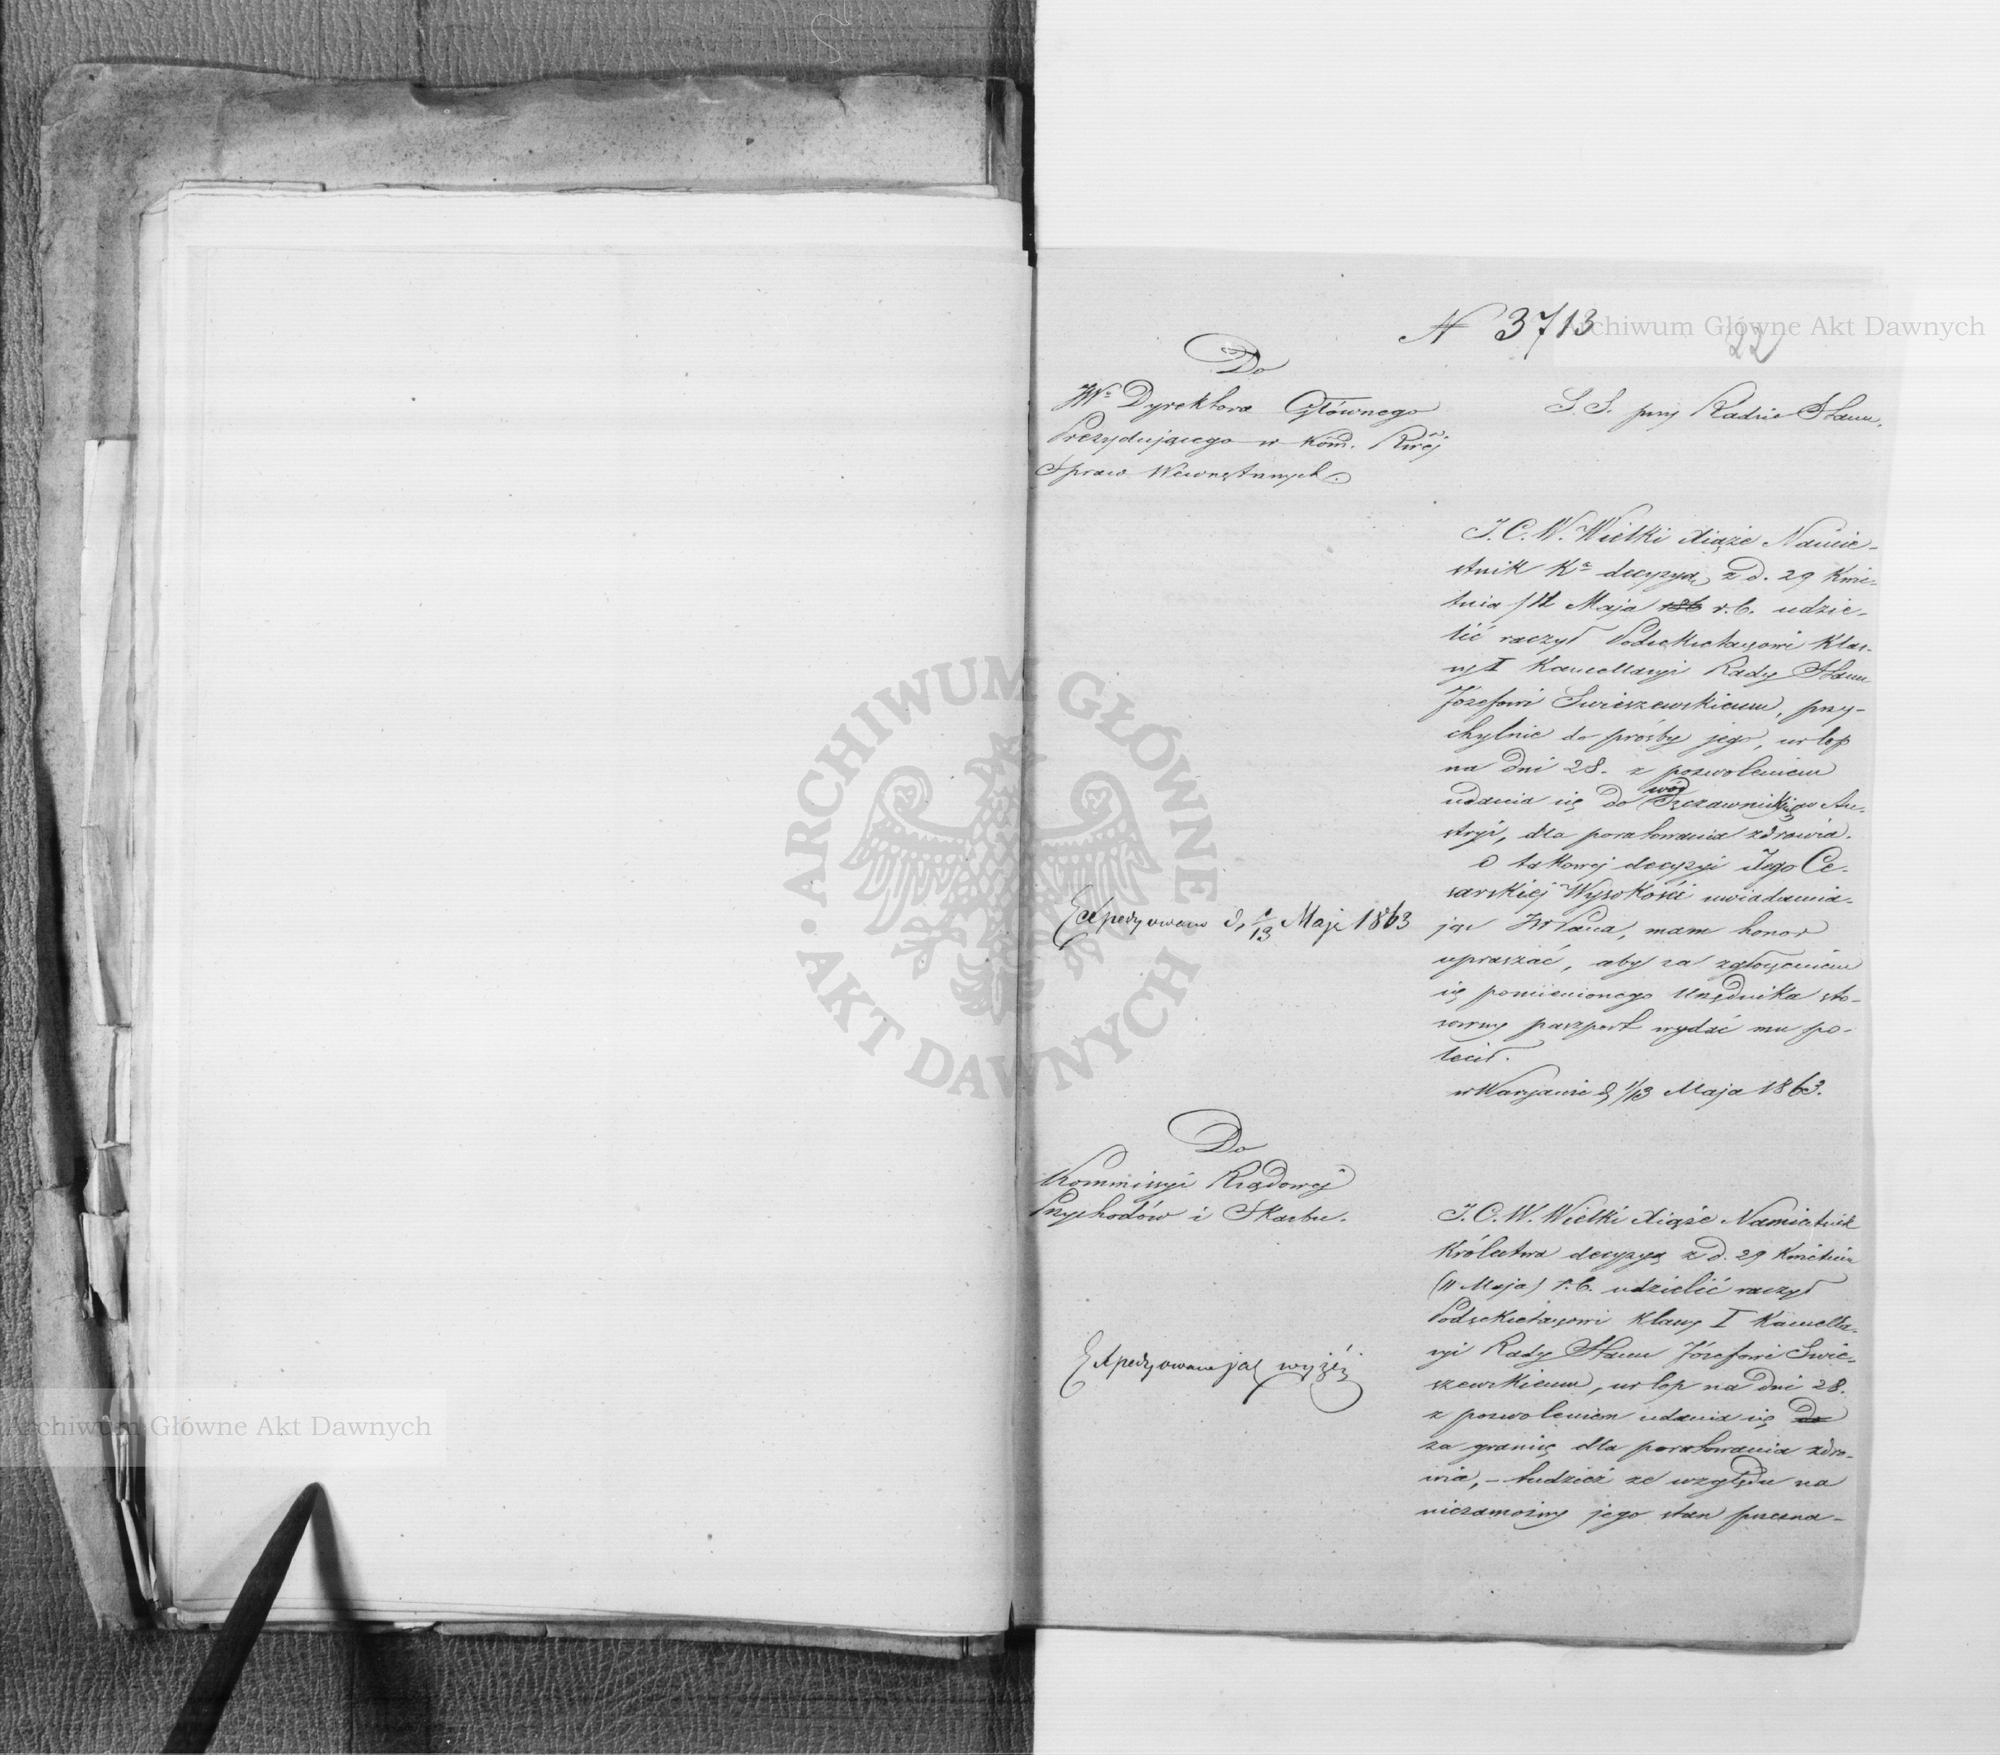 N 3713
22
Do
JWo Dyrektora Głównego
Prezydującego w Kom. Rwéj
Spraw Wewnętrznych.
S. S. przy Radzie Stanu.
J. C. W. Wielki Xiąże Namie-
stnik Ka decyzyą z d. 29 Kwie-
tnia /11 Maja 186 r. b. udzie-
lić raczył Podsekretarzowi Klas-
sy I Kancellaryi Rady Stanu
Józefowi Swieszewskiemu, przy-
chylnie do prośby jego, urlop
na dni 28. z pozwoleniem
udania się do wód Szczawnickich w Au-
stryi, dla poratowania zdrowia.
O takowej decyzyi Jego Ce-
sarskiéj Wysokości uwiadamia-
jąc JWPana, mam honor
upraszać, aby za zgłoszeniem
się pomienionego Urzędnika sto-
sowny paszport wydać mu po-
lecił.
w Warszawie d. 1/13 Maja 1863.
Expedyowano d. 1/13 Maja 1863
Do
Kommissyi Rządowej
Przychodów i Skarbu.
J. C. W. Wielki Xiąże Namiestnik
Królestwa decyzyą z d. 29 Kwietnia
(11 Maja) r. b. udzielić raczył
Podsekretarzowi Klassy I Kancella-
ryi Rady Stanu Józefowi Swie-
szewskiemu, urlop na dni 28.
z pozwoleniem udania się do
za granicę dla poratowania zdro-
wia, – tudzież ze względu na
niezamożny jego stan przezna-
Expedyowano jak wyżéj
Archiwum Główne Akt Dawnych
ARCHIWUM GŁÓWNE · AKT DAWNYCH ·
Archiwum Główne Akt Dawnych